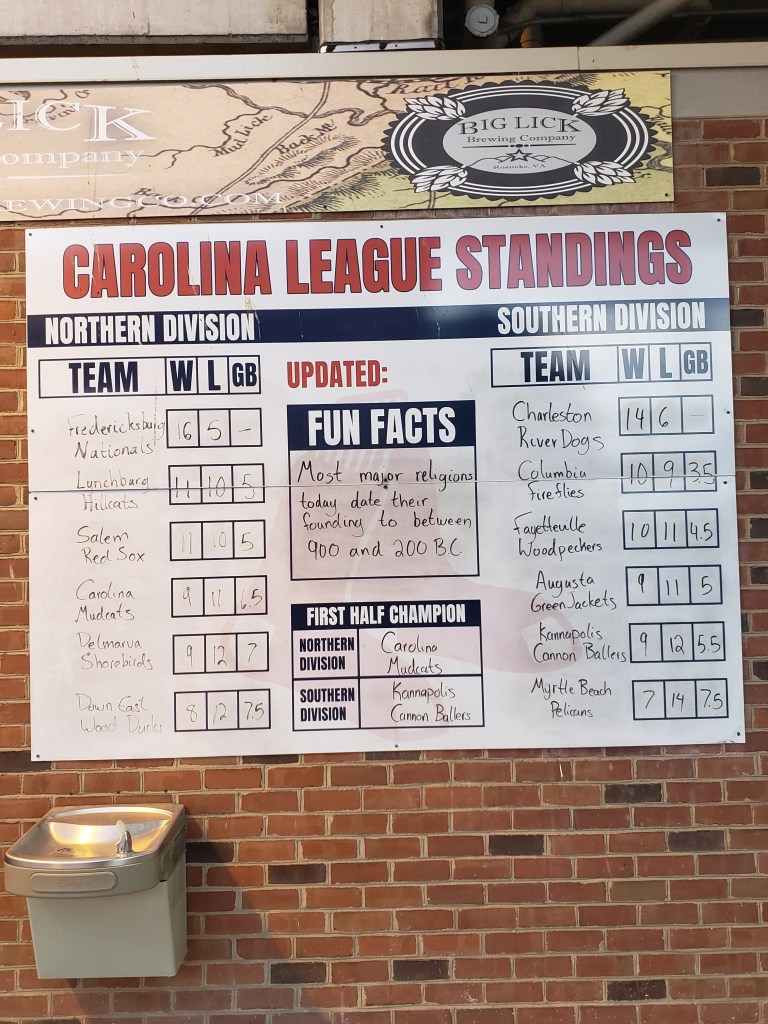 LICK
Company
EWINGCO.COM
Mud Lick
Back
BIG LICK
Brewing Company
Roanoke, VA
CAROLINA LEAGUE STANDINGS
NORTHERN DIVISION
TEAM W L GB
Fredericksburg
Nationals
16 5 –
Lynchburg
Hillcats
11 10 5
Salem
Red Sox
11 10 5
Carolina
Mudcats
9 11 6.5
Delmarva
Shorebirds
9 12 7
Down East
Wood Ducks
8 12 7.5
UPDATED:
FUN FACTS
Most major religions
today date their
founding to between
900 and 200 B.C.
FIRST HALF CHAMPION
NORTHERN
DIVISION
Carolina
Mudcats
SOUTHERN
DIVISION
Kannapolis
Cannon Ballers
SOUTHERN DIVISION
TEAM W L GB
Charleston
RiverDogs
14 6 –
Columbia
Fireflies
10 9 3.5
Fayetteville
Woodpeckers
10 11 4.5
Augusta
GreenJackets
9 11 5
Kannapolis
Cannon Ballers
9 12 5.5
Myrtle Beach
Pelicans
7 14 7.5